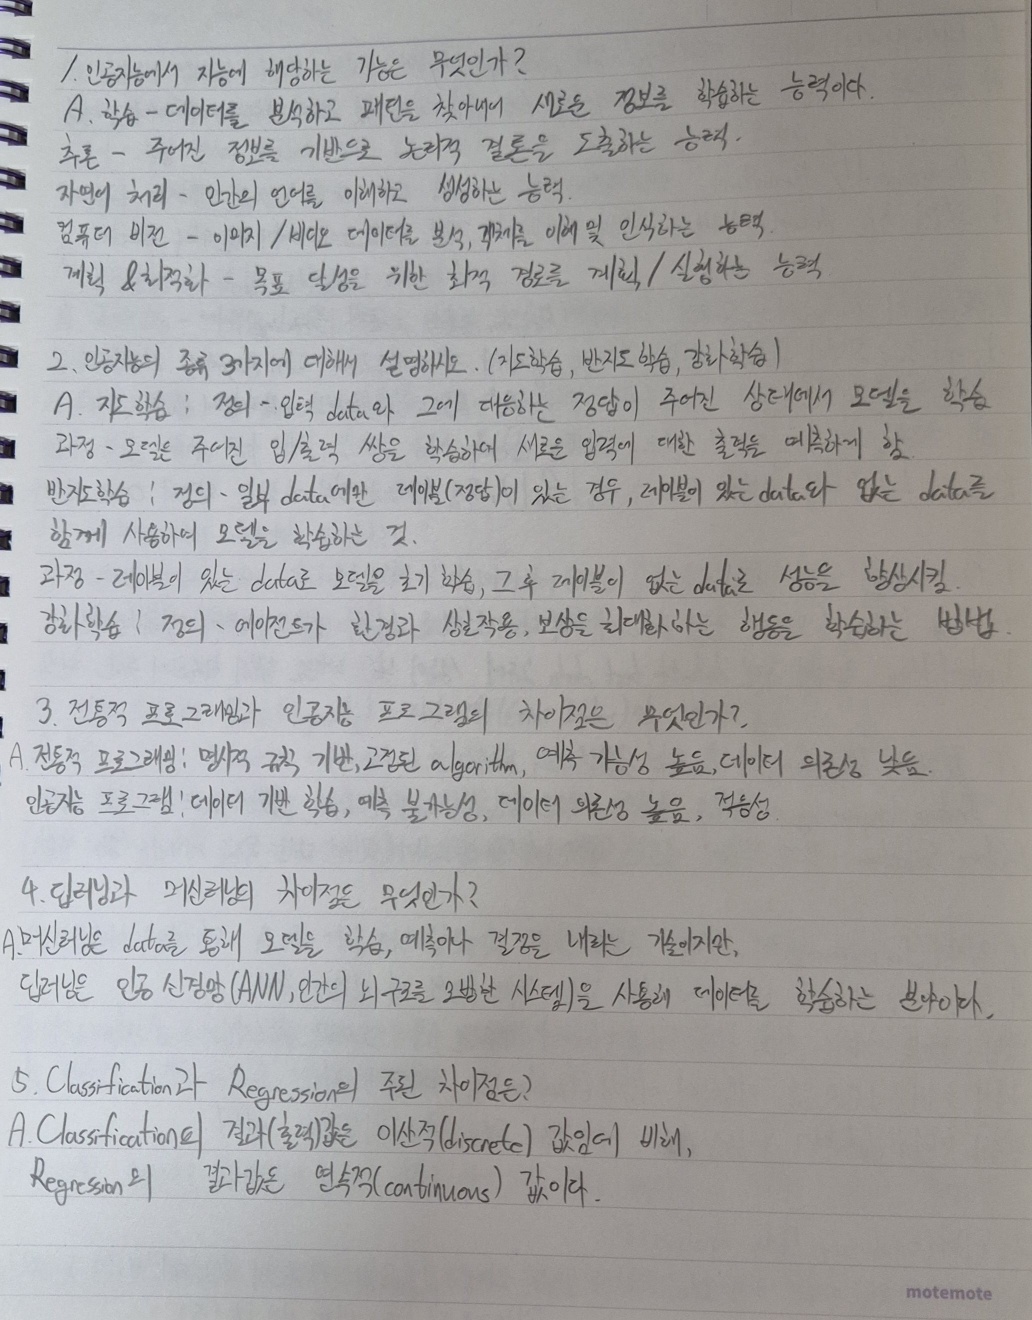 1. 인공지능에서 지능에 해당하는 기능은 무엇인가?
A. 학습 - 데이터를 분석하고 패턴을 찾아내어 새로운 정보를 학습하는 능력이다.
추론 - 주어진 정보를 기반으로 논리적 결론을 도출하는 능력.
자연어 처리 - 인간의 언어를 이해하고 생성하는 능력.
컴퓨터 비전 - 이미지/비디오 데이터를 분석, 객체를 이해 및 인식하는 능력.
계획 & 최적화 - 목표 달성을 위한 최적 경로를 계획/실행하는 능력
2. 인공지능의 종류 3가지에 대해서 설명하시오. (지도학습, 반지도학습, 강화학습)
A. 지도학습 : 정의 - 입력 data와 그에 대응하는 정답이 주어진 상태에서 모델을 학습
과정 - 모델은 주어진 입/출력 쌍을 학습하여 새로운 입력에 대한 출력을 예측하게 함.
반지도학습 : 정의 - 일부 data에만 레이블(정답)이 있는 경우, 레이블이 있는 data와 없는 data를
함께 사용하여 모델을 학습하는 것.
과정 - 레이블이 있는 data로 모델을 초기 학습, 그 후 레이블이 없는 data로 성능을 향상시킴.
강화학습 : 정의 - 에이전트가 환경과 상호작용, 보상을 최대화하는 행동을 학습하는 방법.
3. 전통적 프로그래밍과 인공지능 프로그램의 차이점은 무엇인가?
A. 전통적 프로그래밍 : 명시적 규칙 기반, 고정된 algorithm, 예측 가능성 높음, 데이터 의존성 낮음.
인공지능 프로그램 : 데이터 기반 학습, 예측 불가능성, 데이터 의존성 높음, 적응성.
4. 딥러닝과 머신러닝의 차이점은 무엇인가?
A. 머신러닝은 data를 통해 모델을 학습, 예측이나 결정을 내리는 기술이지만,
딥러닝은 인공 신경망(ANN, 인간의 뇌 구조를 모방한 시스템)을 사용해 데이터를 학습하는 분야이다.
5. Classification과 Regression의 주된 차이점은?
A. Classification의 결과(출력)값은 이산적(discrete) 값임에 비해,
Regression의 결과값은 연속적(continuous) 값이다.
motemote